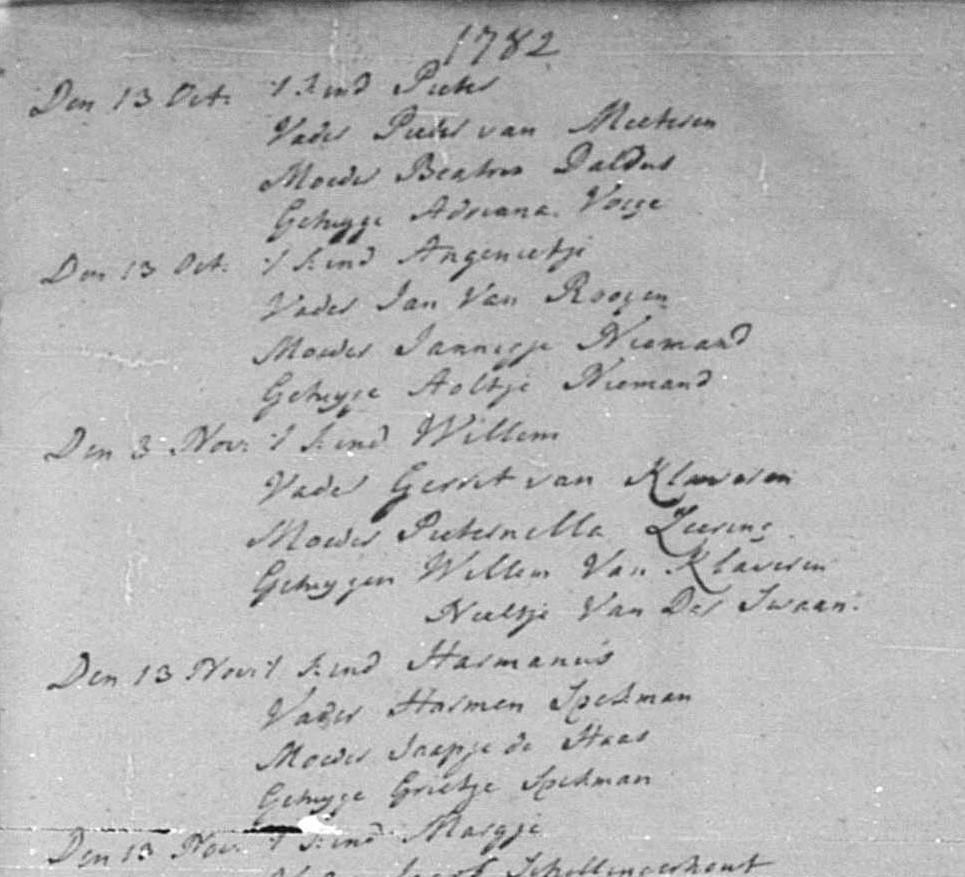 1782
Den 13 Oct. 't Kind Pieter
Vader Pieter van Meetesen
Moeder Beatris Daldus
Getuyge Adriana Voege
Den 13 Oct. 't Kind Angenietje
Vader Jan Van Roogen
Moeder Jannegje Niemand
Getuyge Aoltje Niemand
Den 3 Nov. 't Kind Willem
Vader Gerret van Klaveren
Moeder Pieternella Zeering
Getuygen Willem Van Klaveren
Neeltje Van Der Swaan.
Den 13 Nov. 't Kind Harmanus
Vader Harmen Spekman
Moeder Jaapje de Haas
Getuyge Grietje Spekman
Den 13 Nov. 't Kind Margje
Vader Jacob Schellingerhout